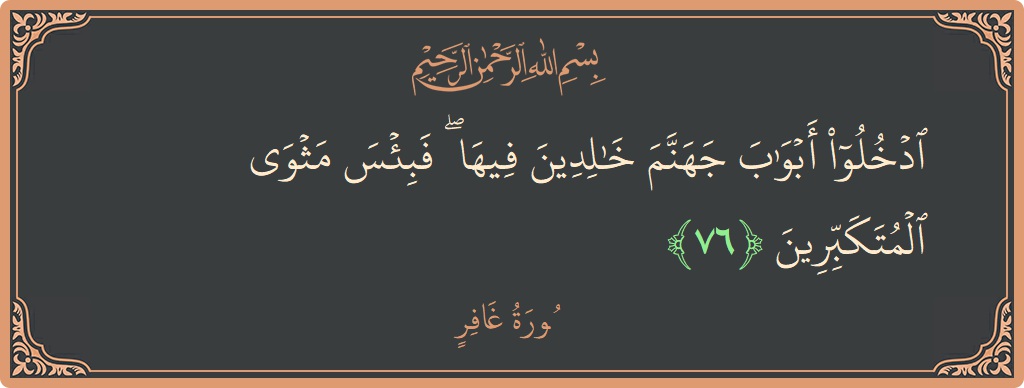 بِسْمِ اللَّهِ الرَّحْمَٰنِ الرَّحِيمِ
ٱدْخُلُوٓا۟ أَبْوَٰبَ جَهَنَّمَ خَٰلِدِينَ فِيهَا ۖ فَبِئْسَ مَثْوَى
ٱلْمُتَكَبِّرِينَ ﴿٧٦﴾
ُورَةُ غَافِرٍ